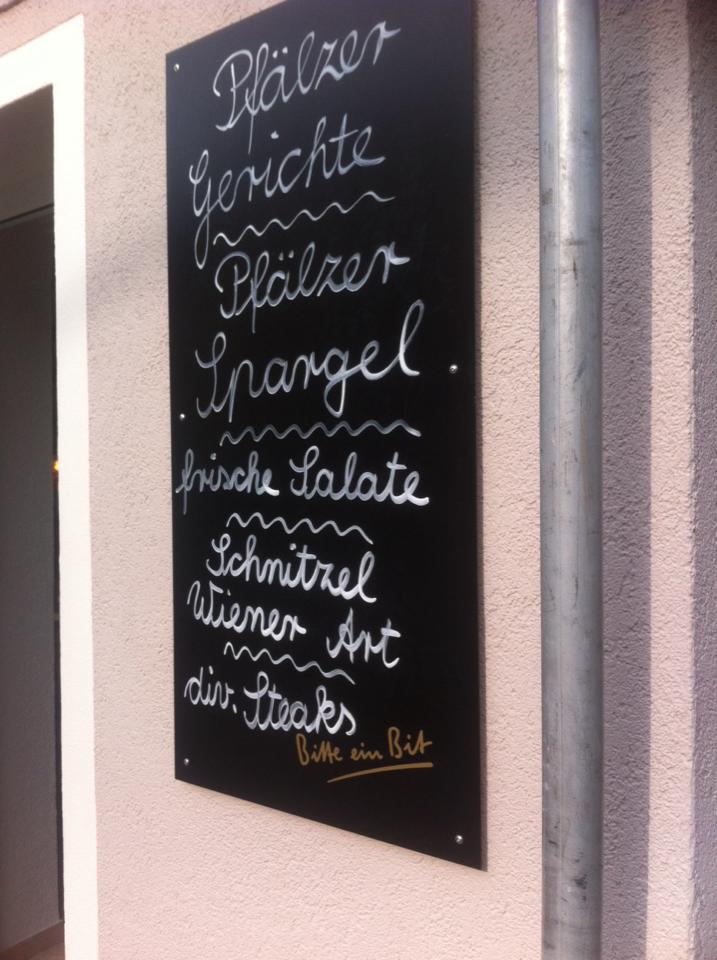 Pfälzer
Gerichte
Pfälzer
Spargel
frische Salate
Schnitzel
Wiener Art
div. Steaks
Bitte ein Bit